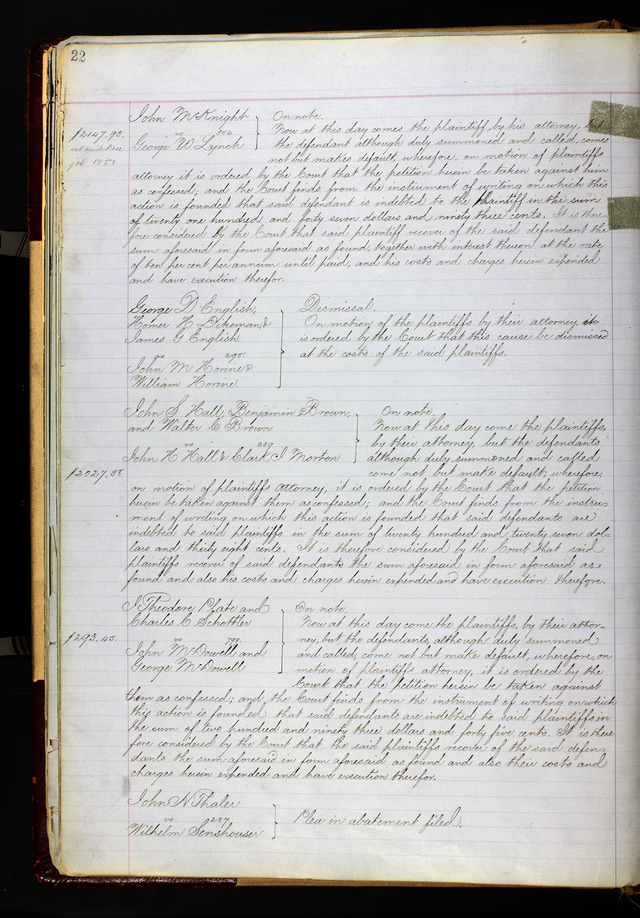 22
John McKnight } On note.
$2147.93. vs 254 Now at this day comes the plaintiff by his attorney, but
George W Lynch the defendant although duly summoned and called, comes
not but makes default, wherefore, on motion of plaintiffs
attorney it is ordered by the Court that the petition herein be taken against him
as confessed; and the Court finds from the instrument of writing on which this
action is founded that said defendant is indebted to the plaintiff in the sum
of twenty one hundred and forty seven dollars and ninety three cents. It is there
fore considered by the Court that said plaintiff recover of the said defendant the
sum aforesaid in form aforesaid as found, together with interest thereon at the rate
of ten per cent per annum until paid, and his costs and charges herein expended
and have execution therefor.
George D. English, } Dismissal.
Homer H Dikeman &
James G English
On motion of the plaintiffs by their attorney, it
is ordered by the Court that this cause be dismissed
at the costs of the said plaintiffs.
vs 290
John M Horine &
William Horine
John S. Hall, Benjamin Brown, } On note.
and Walter C Brown
Now at this day come the plaintiffs,
by their attorney, but the defendants
vs 639
John H Hall & Clark I Morton although duly summoned and called
$2027.38 come not but make default; wherefore
on motion of plaintiffs attorney, it is ordered by the Court that the petition
herein be taken against them as confessed; and the Court finds from the instru-
ment of writing on which this action is founded that said defendants are
indebted to said plaintiffs in the sum of twenty hundred and twenty seven dol-
lars and thirty eight cents. It is therefore considered by the Court that said
plaintiffs recover of said defendants the sum aforesaid in form aforesaid as
found and also his costs and charges herein expended and have execution therefore.
I Theodore Plate and } On note.
Charles C Schottler
Now at this day come the plaintiffs, by their attor-
$293.45. vs 799 ney, but the defendants, although duly summoned
John McDowell and and called, come not but make default, wherefore, on
George McDowell motion of plaintiffs attorney, it is ordered by the
Court that the petition herein be taken against
them as confessed; and, the Court finds from the instrument of writing on which
this action is founded, that said defendants are indebted to said plaintiffs in
the sum of two hundred and ninety three dollars and forty five cents. It is there
fore considered by the Court that the said plaintiffs recover of the said defen-
dants the sum aforesaid in form aforesaid as found and also their costs and
charges herein expended and have execution therefor.
John N Thaler
vs 287 } Plea in abatement filed.
Wilhelm Senshouser